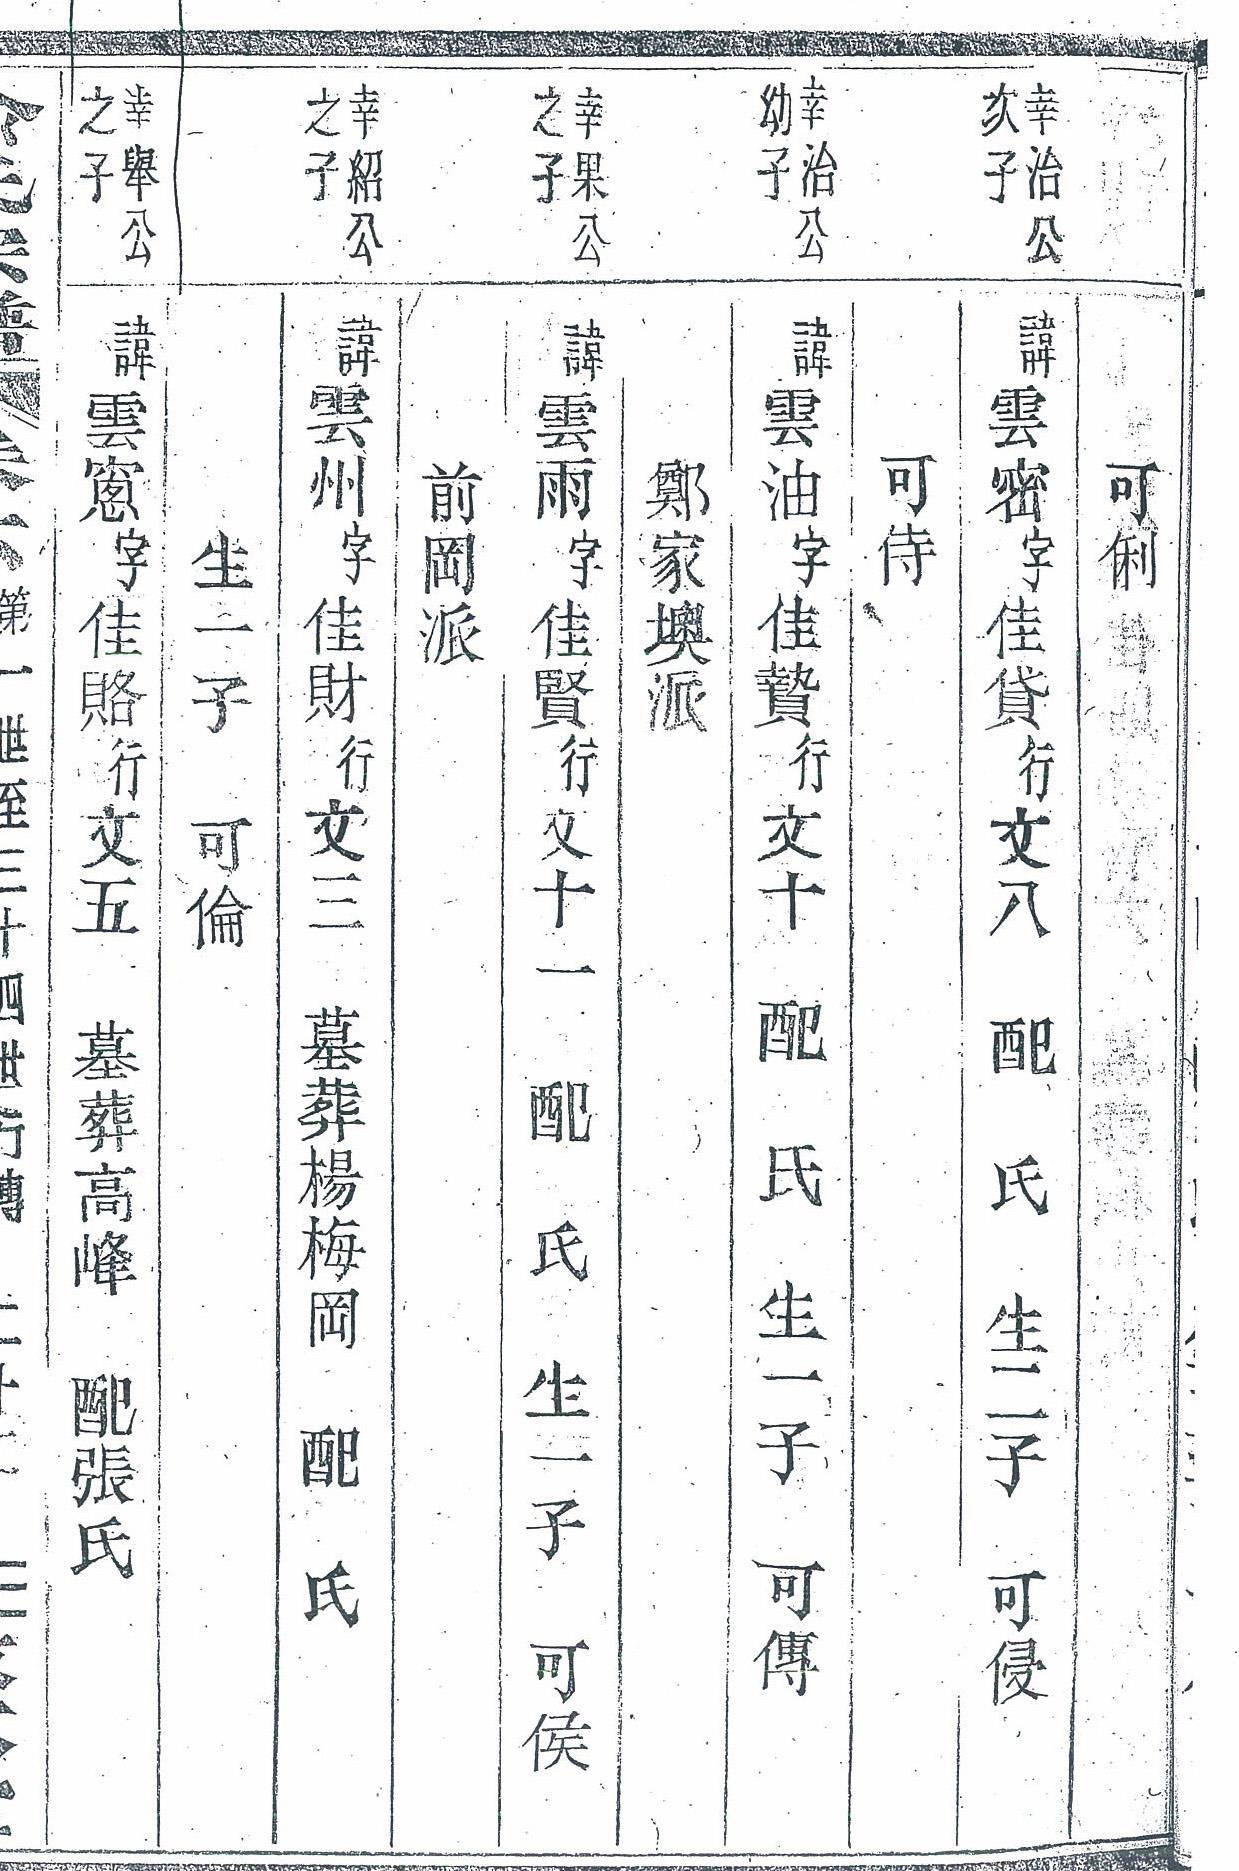 可俐
幸治公
次子
諱雲密字佳貸行文八 配 氏 生二子 可侵
可侍
幸治公
幼子
諱雲油字佳贄行文十 配 氏 生一子 可傳
鄭家墺派
幸果公
之子
諱雲雨字佳賢行文十一 配 氏 生一子 可侯
前岡派
幸紹公
之子
諱雲州字佳財行文三 墓葬楊梅岡 配 氏
生一子 可倫
幸舉公
之子
諱雲窓字佳賂行文五 墓葬高峰 配張氏
第一世至三十四世行傳